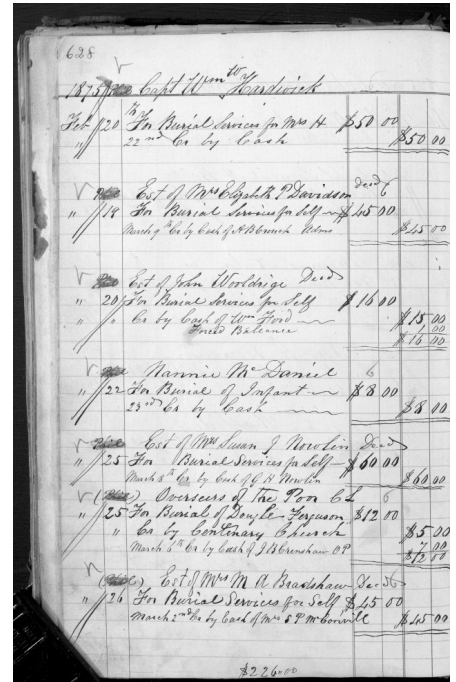 628
1875 Capt Wm Hardwick
Feb 20th For Burial Services for Mrs H $50 00
22nd Cr by Cash $50 00
Est of Mrs Elizabeth P Davidson decd 6
" 19 For Burial Services for Self $45 00
March 9th Cr by Cash of A B Crouch Admr $45 00
Est of John Wooldrige Decd
" 20 For Burial Services for Self $16 00
" " Cr by Cash of Wm Ford $15 00
Forced Balance 1 00
$16 00
Nannie McDaniel 6
" 22 For Burial of Infant $8 00
23rd Cr by Cash $8 00
Est of Mrs Susan J Nowlin Decd
" 25 For Burial Services for Self $60 00
March 8th Cr by Cash of G H Nowlin $60 00
Overseers of the Poor 6
" 25 For Burial of Ferguson $12 00
" Cr by Centinary Church $5 00
March 6th Cr by Cash of J B Crenshaw O P 7 00
$12 00
Est of Mrs M A Bradshaw Decd 6
" 26 For Burial Services for Self $45 00
March 2nd Cr by Cash of Mrs S P McConville $45 00
$226.00